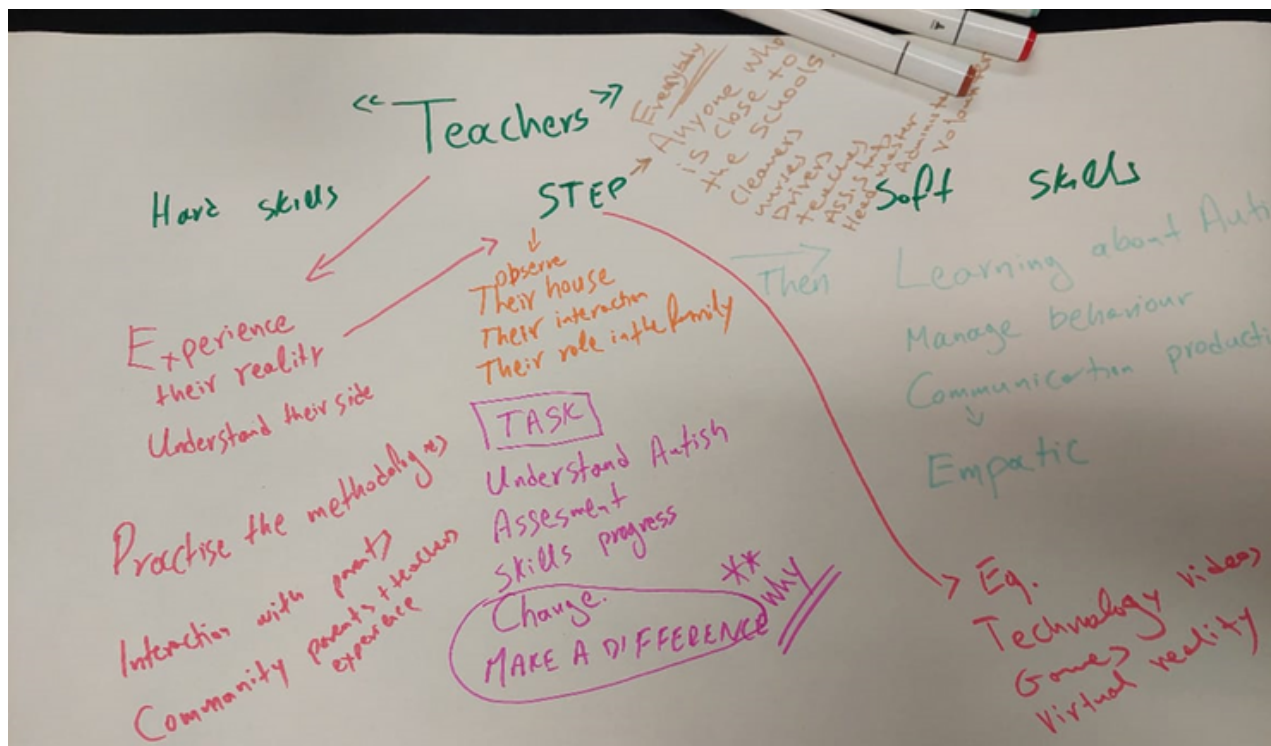 "Teachers"
Hard skills
STEP
Soft skills
Everybody
Anyone who
is close to
the schools.
Cleaners
nurses
Drivers
teachers
Assistants
Headmaster
Experience
their reality
Understand their side
Practise the methodologies
Interaction with parents
Community parents + teachers
experience
observe
Their house
Their interaction
Their role in the family
TASK
Understand Autism
Assesment
Skills progress
Change.
MAKE A DIFFERENCE
** why
Then
Learning about
Manage behaviour
Communication
Empatic
Eg.
Technology videos
Games
Virtual reality